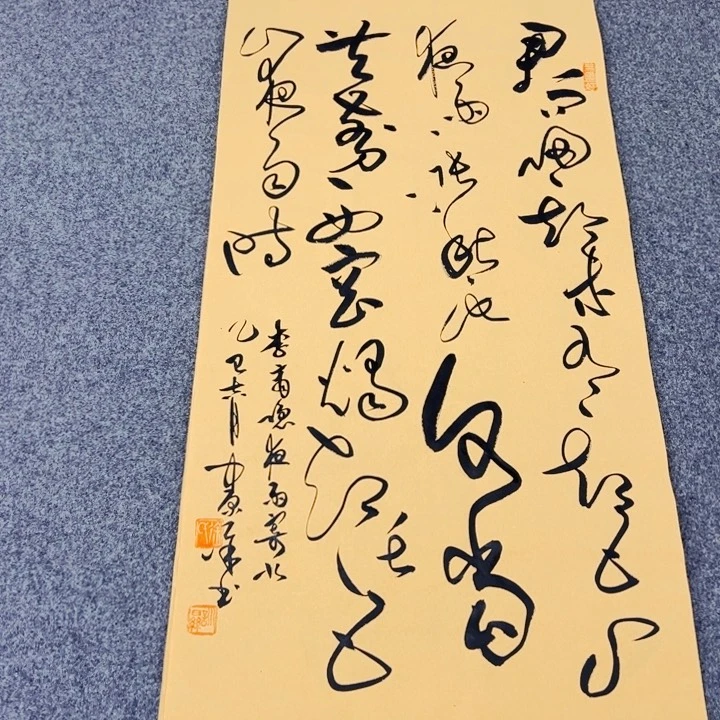 君問歸期未有期巴山
夜雨漲秋池何當
共剪西窗燭却話巴
山夜雨時
李商隱夜雨寄北
乙巳六月書